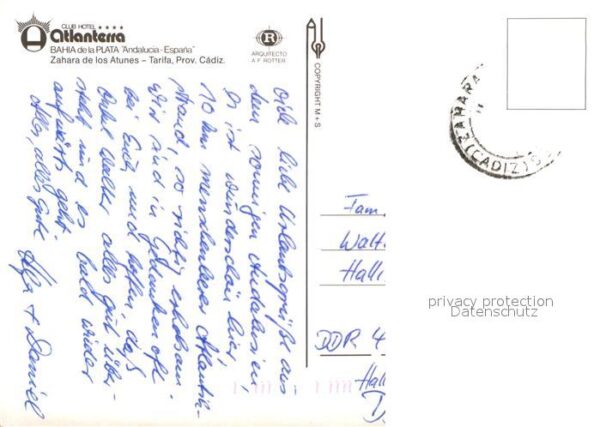 CLUB HOTEL ★★★★
Atlanterra
BAHIA de la PLATA "Andalucia - España"
Zahara de los Atunes – Tarifa, Prov. Cádiz.
R
ARQUITECTO
A F ROTTER
COPYRIGHT M + S
Viele liebe Urlaubsgrüße aus
dem sonnigen Andalusien,
Es ist wunderschön hier
10 km menschenleerer Atlantik-
strand, so richtig erholsam.
Wir sind in Gedanken oft
bei Euch und hoffen, daß
Onkel Walter alles gut über-
steht und es bald wieder
aufwärts geht.
Alles, alles Gute
+ Daniel
Fam.
Walt
Hall
DDR 4
Hall
D
ZAHARA
(CADIZ)
privacy protection
Datenschutz